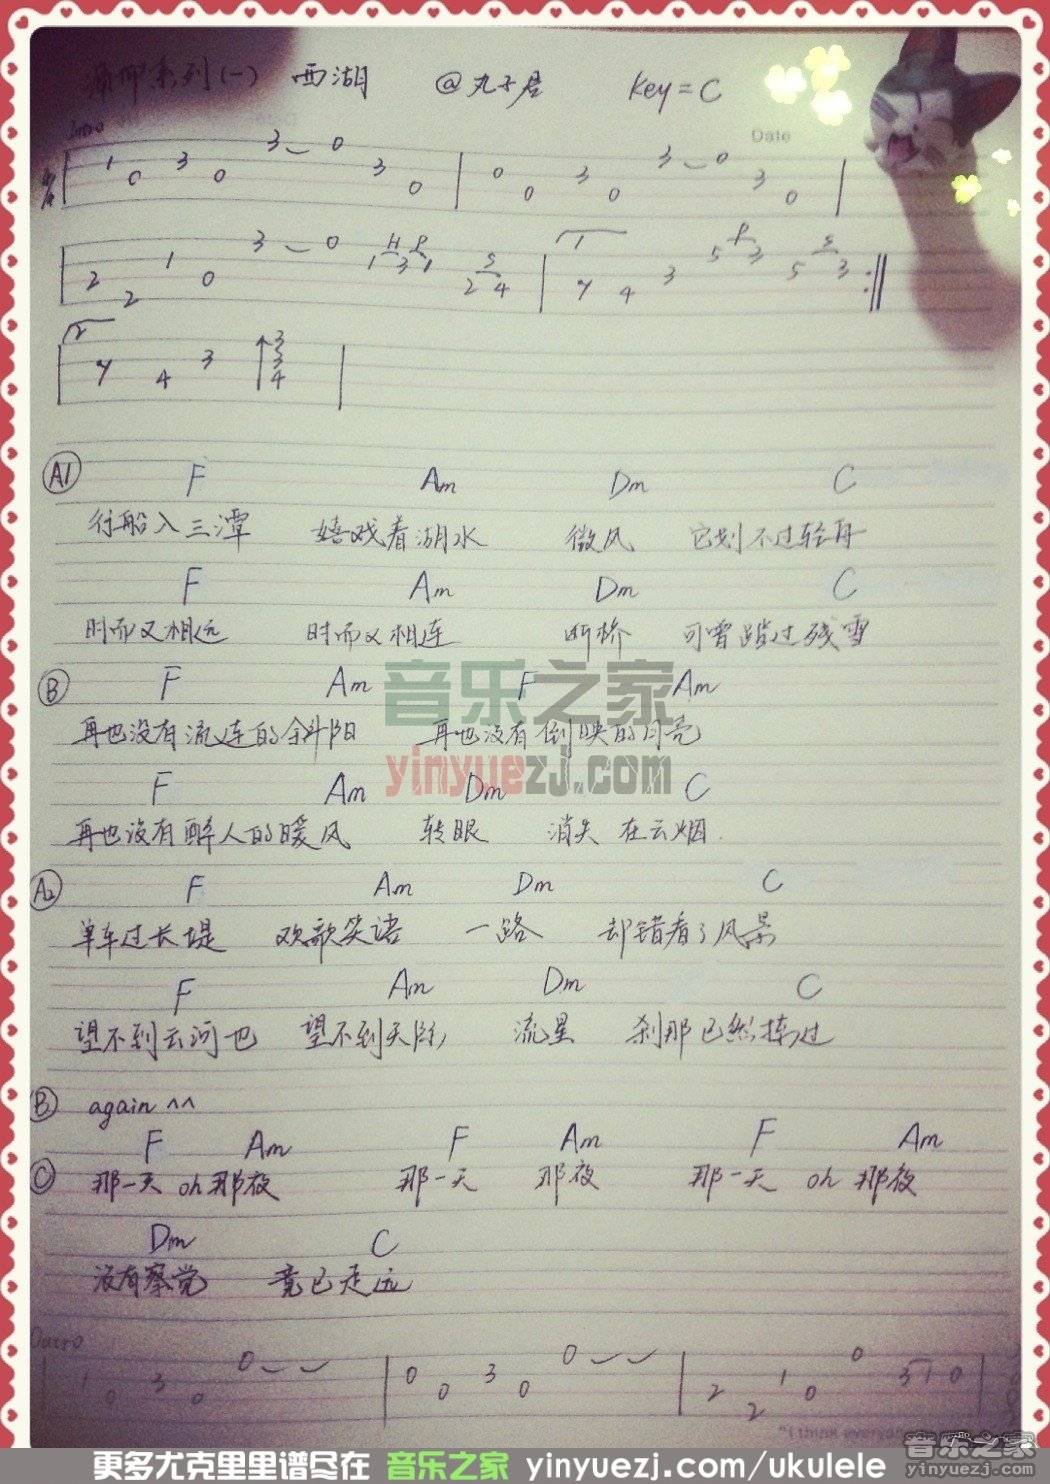 系列(一) 西湖 @丸子君 Key=C
Intro
Date
1 0 3 0 3 0 3 0 0 0 3 0 3 0 3 0
H P S 1 P S
2 2 1 0 3 0 1 3 1 2 4 7 4 3 5 3 5 3
2
7 4 3 3 3 3 4
A1 F Am Dm C
行船入三潭 嬉戏着湖水 微风 它划不过轻舟
F Am Dm C
时而又相远 时而又相连 断桥 可曾踏过残雪
B F Am F Am
再也没有流连的斜阳 再也没有倒映的月亮
音乐之家
yinyuezj.com
F Am Dm C
再也没有醉人的暖风 转眼 消失在云烟
A2 F Am Dm C
单车过长堤 欢歌笑语 一路 却错看了风景
F Am Dm C
望不到云河也 望不到天际 流星 刹那已然掠过
B again ^^
F Am F Am F Am
C 那一天 oh 那夜 那一天 那夜 那一天 oh 那夜
Dm C
没有察觉 竟已走远
Outro
1 0 3 0 0 0 0 3 0 0 2 2 1 0 0 3 1 0
"I think
音乐之家
yinyuezj.com
更多尤克里里谱尽在 音乐之家 yinyuezj.com/ukulele